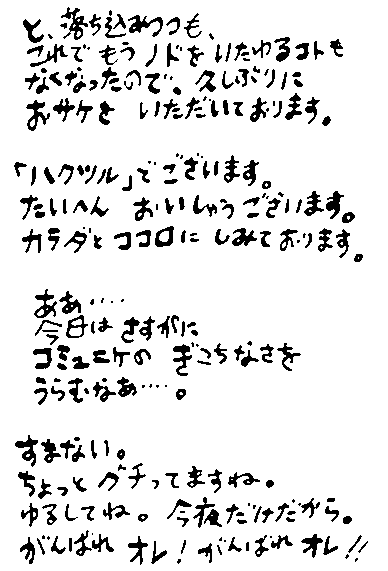 と、落ち込みつつも、
これで もう ノドを いたゆるコトも
なくなったので、久しぶりに
おサケを いただいております。
「ハクツル」でございます。
たいへん おいしゅうございます。
カラダと ココロに しみております。
ああ‥‥
今日は さすがに
コミュニケの ぎこちなさを
うらむなあ‥‥。
すまない。
ちょっと グチってますね。
ゆるしてね。 今夜だけだから。
がんばれ オレ! がんばれ オレ!!